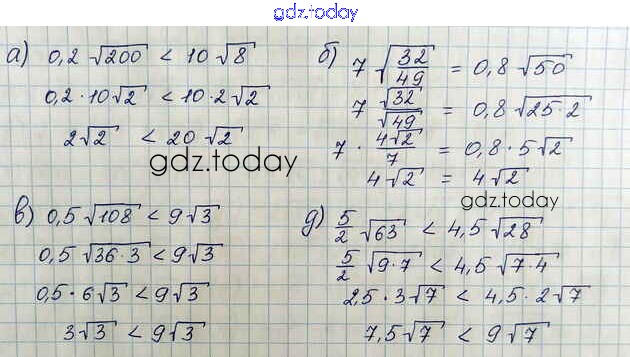 gdz.today
а) 0,2 √200 < 10 √8
0,2 · 10√2 < 10 · 2√2
2√2 < 20 √2
gdz.today
б) 7 √(32/49) = 0,8 √50
7 √32/√49 = 0,8 √(25·2)
7 · 4√2/7 = 0,8 · 5√2
4√2 = 4√2
gdz.today
в) 0,5 √108 < 9√3
0,5 √(36·3) < 9√3
0,5 · 6√3 < 9√3
3√3 < 9√3
д) 5/2 √63 < 4,5 √28
5/2 √(9·7) < 4,5 √(7·4)
2,5 · 3√7 < 4,5 · 2√7
7,5√7 < 9√7